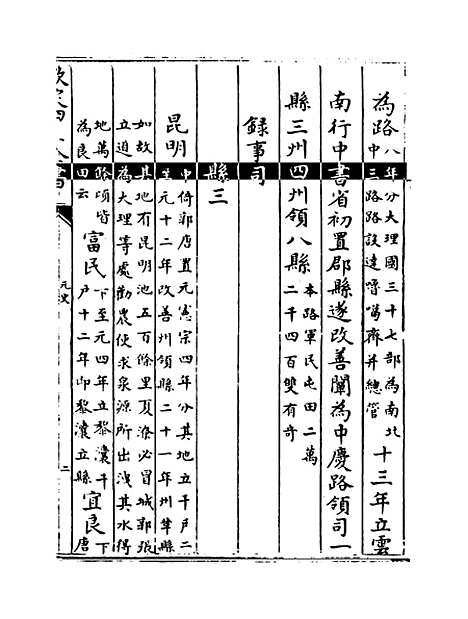 為路八年分大理國三十七部為南北
中三路路設達嚕噶齊并總管十三年立雲
南行中書省初置郡縣遂改善闡為中慶路領司一
縣三州四州領八縣本路軍民屯田二萬
二千四百雙有奇
録事司
縣三
昆明中倚郭唐置元憲宗四年分其地立千戶二
至元十二年改善州領縣二十一年州革縣
如故其地有昆明池五百餘里夏潦必冒城郭張
立道為大理等處勸農使求泉源所出洩其水得
地萬餘頃皆
為良田云富民下至元四年立黎瀼千
戶十二年即黎瀼立縣宜良下
唐
元史
二